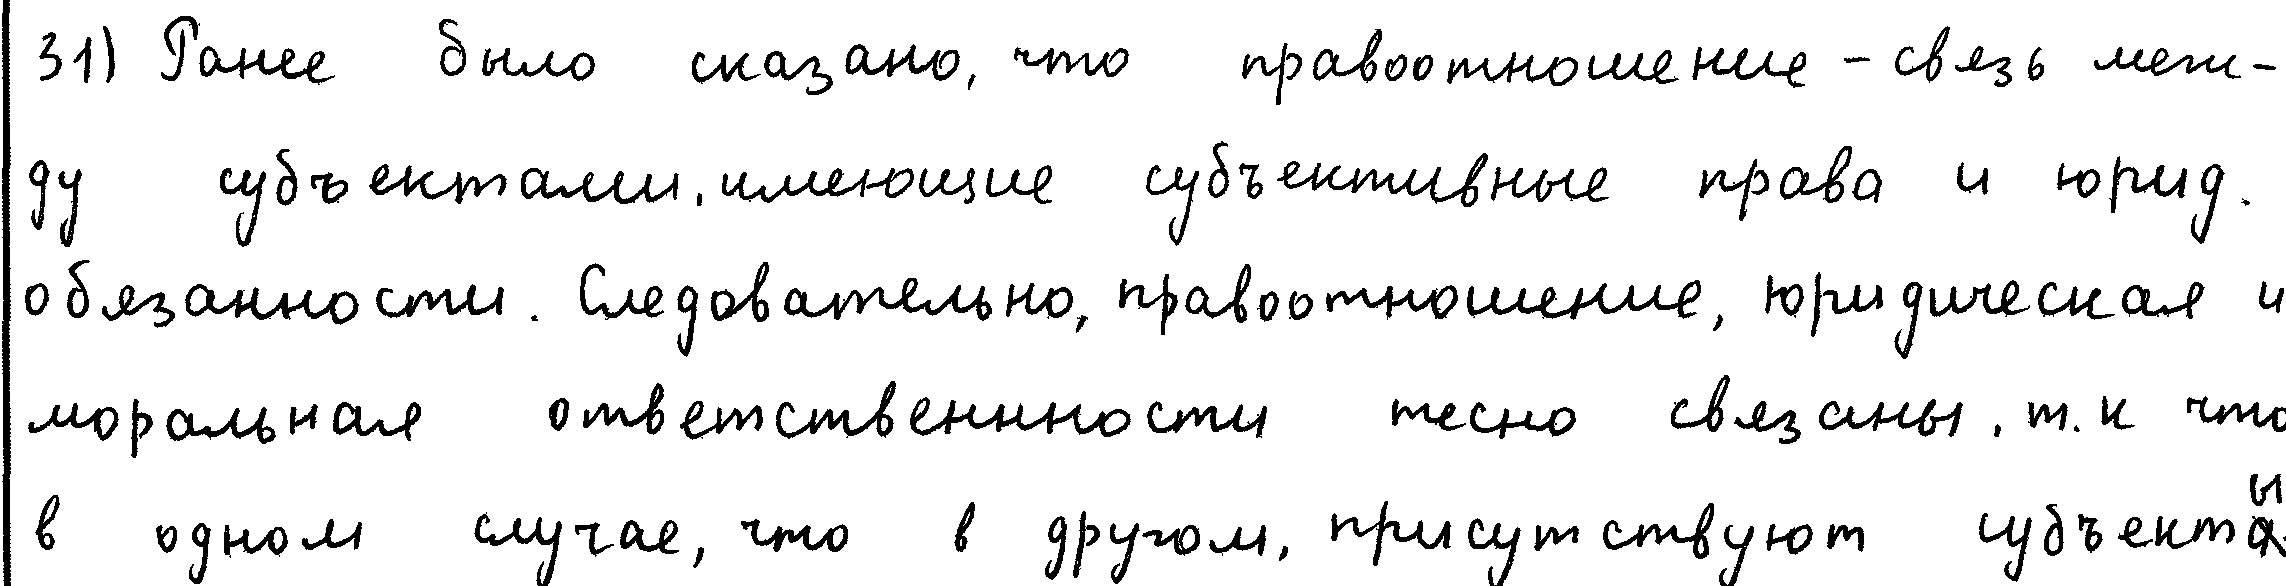 31) Ранее было сказано, что правоотношение – связь меж-
ду субъектами, имеющие субъективные права и юрид.
обязанности. Следовательно, правоотношение, юридическая и
моральная ответственности тесно связаны, т.к что
в одном случае, что в другом, присутствуют субъекты